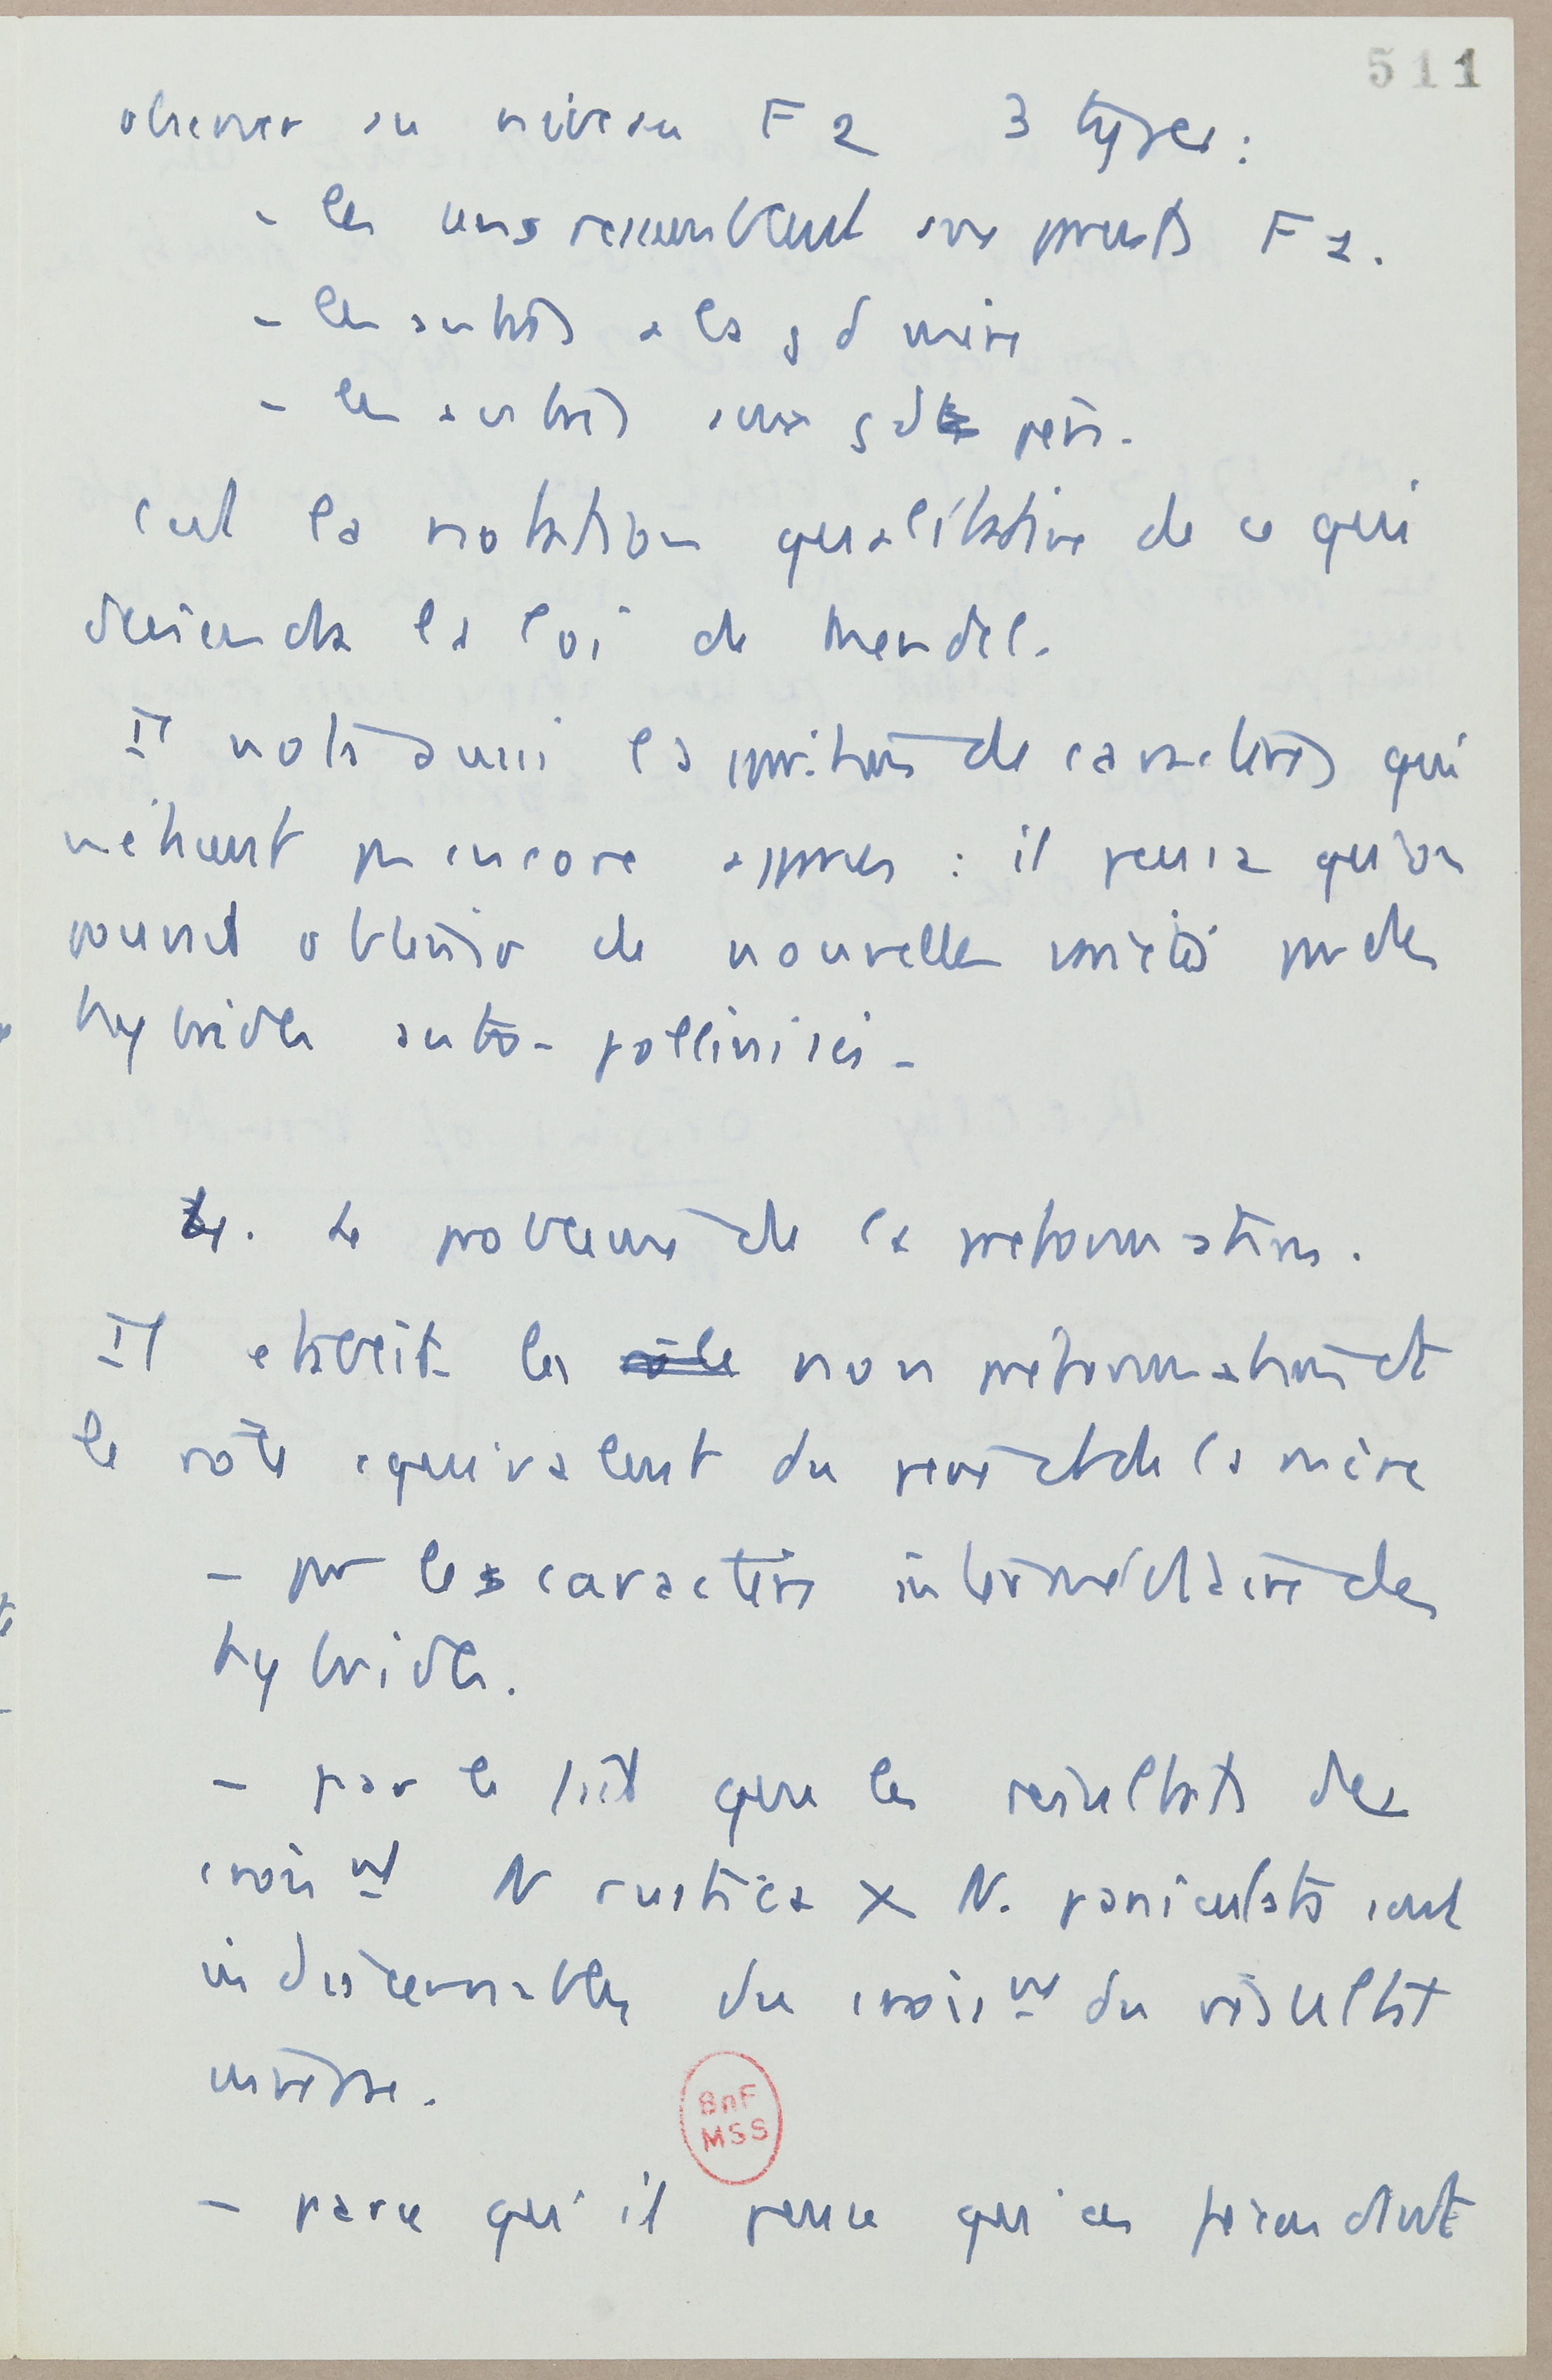 511
observer au niveau F2 3 types:
- les uns ressemblant aux parents F1.
- les autres à la gd mère
- les autres aux gd père.
C'est la notation qualitative de ce qui
deviendra la loi de Mendel.
Il note aussi l'apparition de caractères qui
n'étaient pas encore apparus : il pensa qu'on
pouvait obtenir de nouvelles variétés par des
hybrides auto-pollinisés -
4. Le problème de la préformation.
Il établit la non préformation et
le rôle équivalent du père et de la mère
- par les caractères intermédiaires des
hybrides.
- par le fait que les résultats des
croismt N rustica X N. paniculata sont
indiscernables du croismt du résultat
inverse.
BnF
MSS
- parce qu'il pense qu'en fécondant